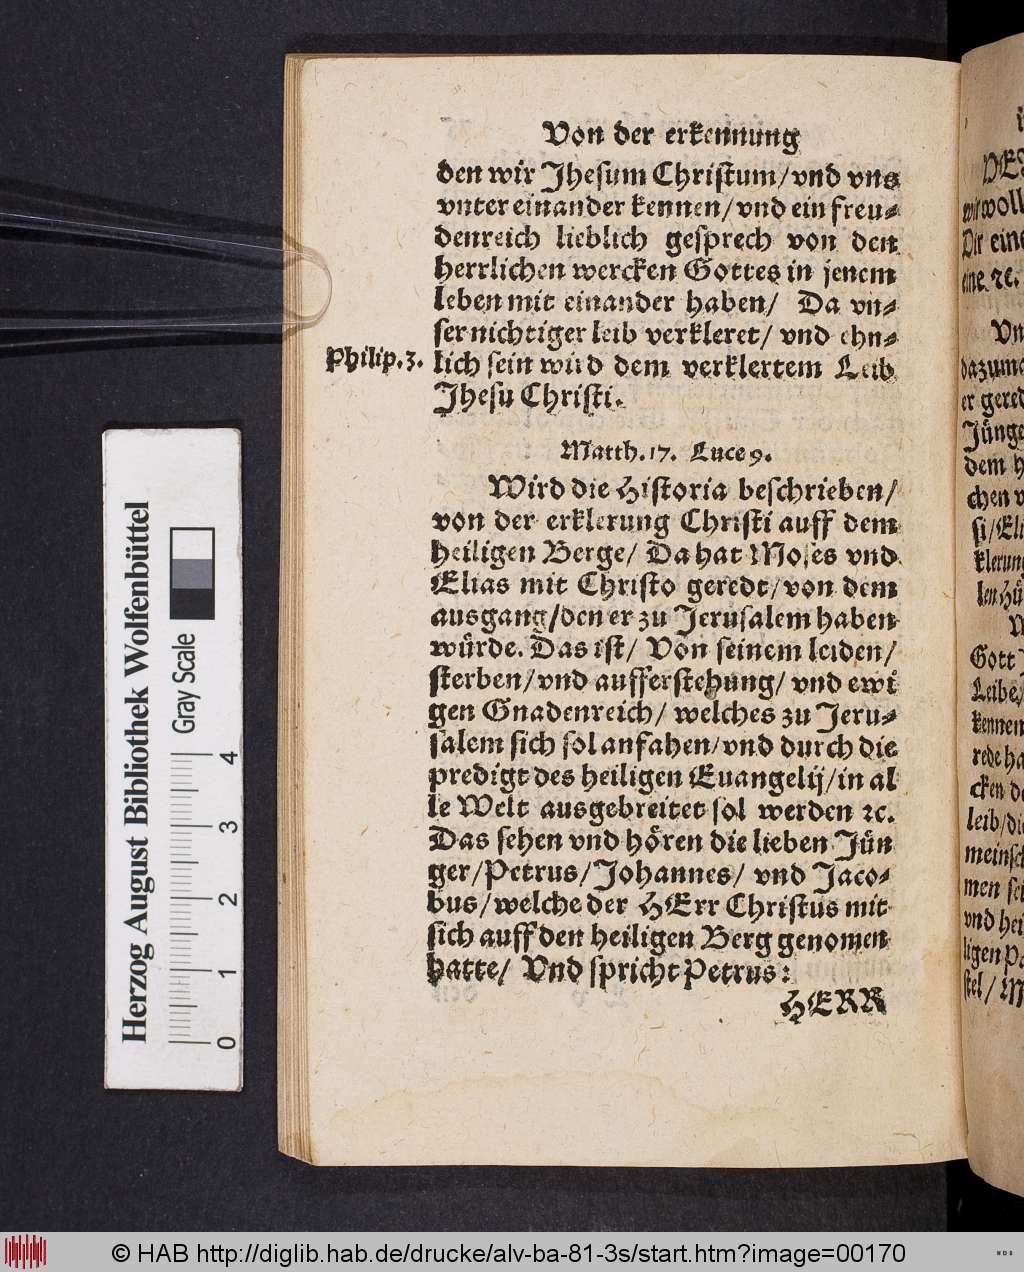 Von der erkennung
den wir Jhesum Christum/vnd vns
vnter einander kennen/vnd ein freu-
denreich lieblich gesprech von den
herrlichen wercken Gottes in jenem
leben mit einander haben/ Da vn-
ser nichtiger leib verkleret/ vnd ehn-
Philip.3. lich sein wird dem verklertem Leib
Jhesu Christi.
Matth.17. Luce 9.
Wird die Historia beschrieben/
von der erklerung Christi auff dem
heiligen Berge/ Da hat Moses vnd
Elias mit Christo geredt/von dem
ausgang/den er zu Jerusalem haben
würde. Das ist/ Von seinem leiden/
sterben/vnd aufferstehung/ vnd ewi
gen Gnadenreich/ welches zu Jeru-
salem sich sol anfahen/vnd durch die
predigt des heiligen Euangelij/in al
le Welt ausgebreitet sol werden ꝛc.
Das sehen vnd hören die lieben Jün
ger/Petrus/Johannes/ vnd Jaco-
bus/welche der HErr Christus mit
sich auff den heiligen Berg genomen
hatte/ Vnd spricht Petrus:
HERR
wir woll
Dir eine
eine ꝛc.
Vn
dazuma
er gered
Jünge
dem h
chen v
si/Eli
klerung
len Hü
Gott
Leibe/
kennen
rede ha
cken de
leib/die
meinsch
men sei
vnd hei
ligen Pa
stel/ M
Herzog August Bibliothek Wolfenbüttel
Gray Scale
0 1 2 3 4
© HAB http://diglib.hab.de/drucke/alv-ba-81-3s/start.htm?image=00170